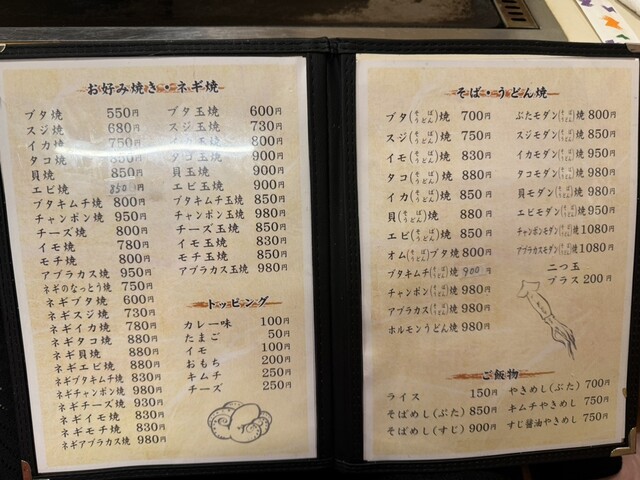 お好み焼き・ネギ焼
ブタ焼 550円
スジ焼 680円
イカ焼 750円
タコ焼 850円
貝焼 850円
エビ焼 850円
ブタキムチ焼 800円
チャンポン焼 950円
チーズ焼 800円
イモ焼 780円
モチ焼 800円
アブラカス焼 950円
ネギのなっとう焼 750円
ネギブタ焼 600円
ネギスジ焼 730円
ネギイカ焼 780円
ネギタコ焼 880円
ネギ貝焼 880円
ネギエビ焼 880円
ネギブタキムチ焼 830円
ネギチャンポン焼 980円
ネギチーズ焼 930円
ネギイモ焼 830円
ネギモチ焼 830円
ネギアブラカス焼 980円
ブタ玉焼 600円
スジ玉焼 730円
イカ玉焼 800円
タコ玉焼 900円
貝玉焼 900円
エビ玉焼 900円
ブタキムチ玉焼 850円
チャンポン玉焼 980円
チーズ玉焼 850円
イモ玉焼 830円
モチ玉焼 850円
アブラカス玉焼 980円
トッピング
カレー味 100円
たまご 50円
イモ 100円
おもち 200円
キムチ 250円
チーズ 250円
そば・うどん焼
ブタ(そば うどん)焼 700円
スジ(そば うどん)焼 750円
イモ(そば うどん)焼 830円
タコ(そば うどん)焼 880円
イカ(そば うどん)焼 850円
貝(そば うどん)焼 880円
エビ(そば うどん)焼 850円
オム(そば うどん)ブタ焼 800円
ブタキムチ(そば うどん)焼 900円
チャンポン(そば うどん)焼 980円
アブラカス(そば うどん)焼 980円
ホルモンうどん焼 980円
ぶたモダン(そば うどん)焼 800円
スジモダン(そば うどん)焼 850円
イカモダン(そば うどん)焼 950円
タコモダン(そば うどん)焼 980円
貝モダン(そば うどん)焼 980円
エビモダン(そば うどん)焼 950円
チャンポンモダン(そば うどん)焼 1080円
アブラカスモダン(そば うどん)焼 1080円
二つ玉
プラス 200円
ご飯物
ライス 150円
そばめし(ぶた) 850円
そばめし(すじ) 900円
やきめし(ぶた) 700円
キムチやきめし 750円
すじ醤油やきめし 750円